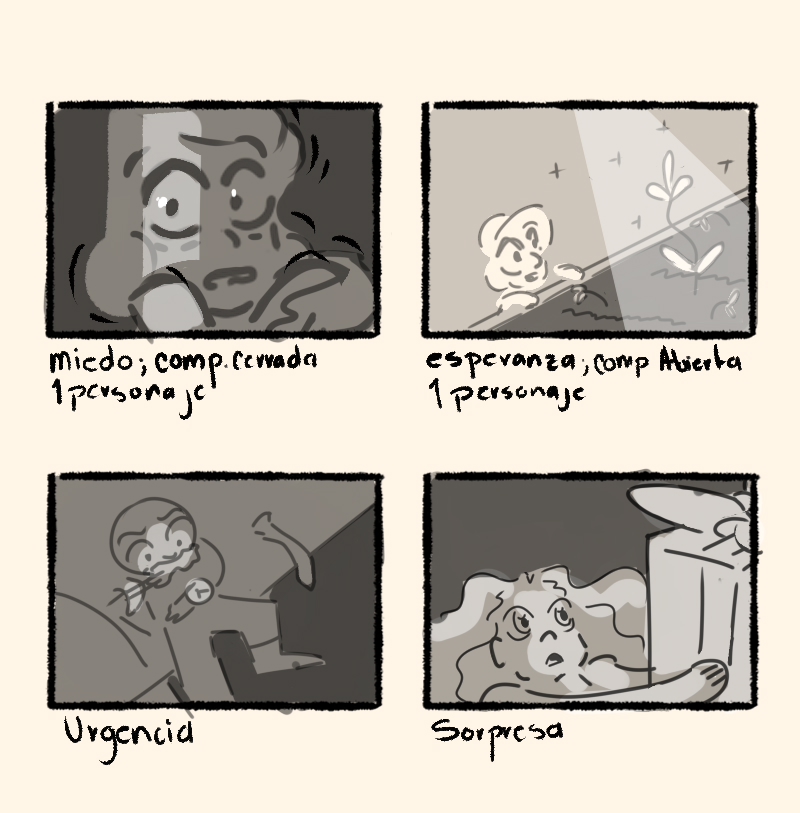 miedo; comp. cerrada
1 personaje
esperanza; comp Abierta
1 personaje
Urgencia
Sorpresa